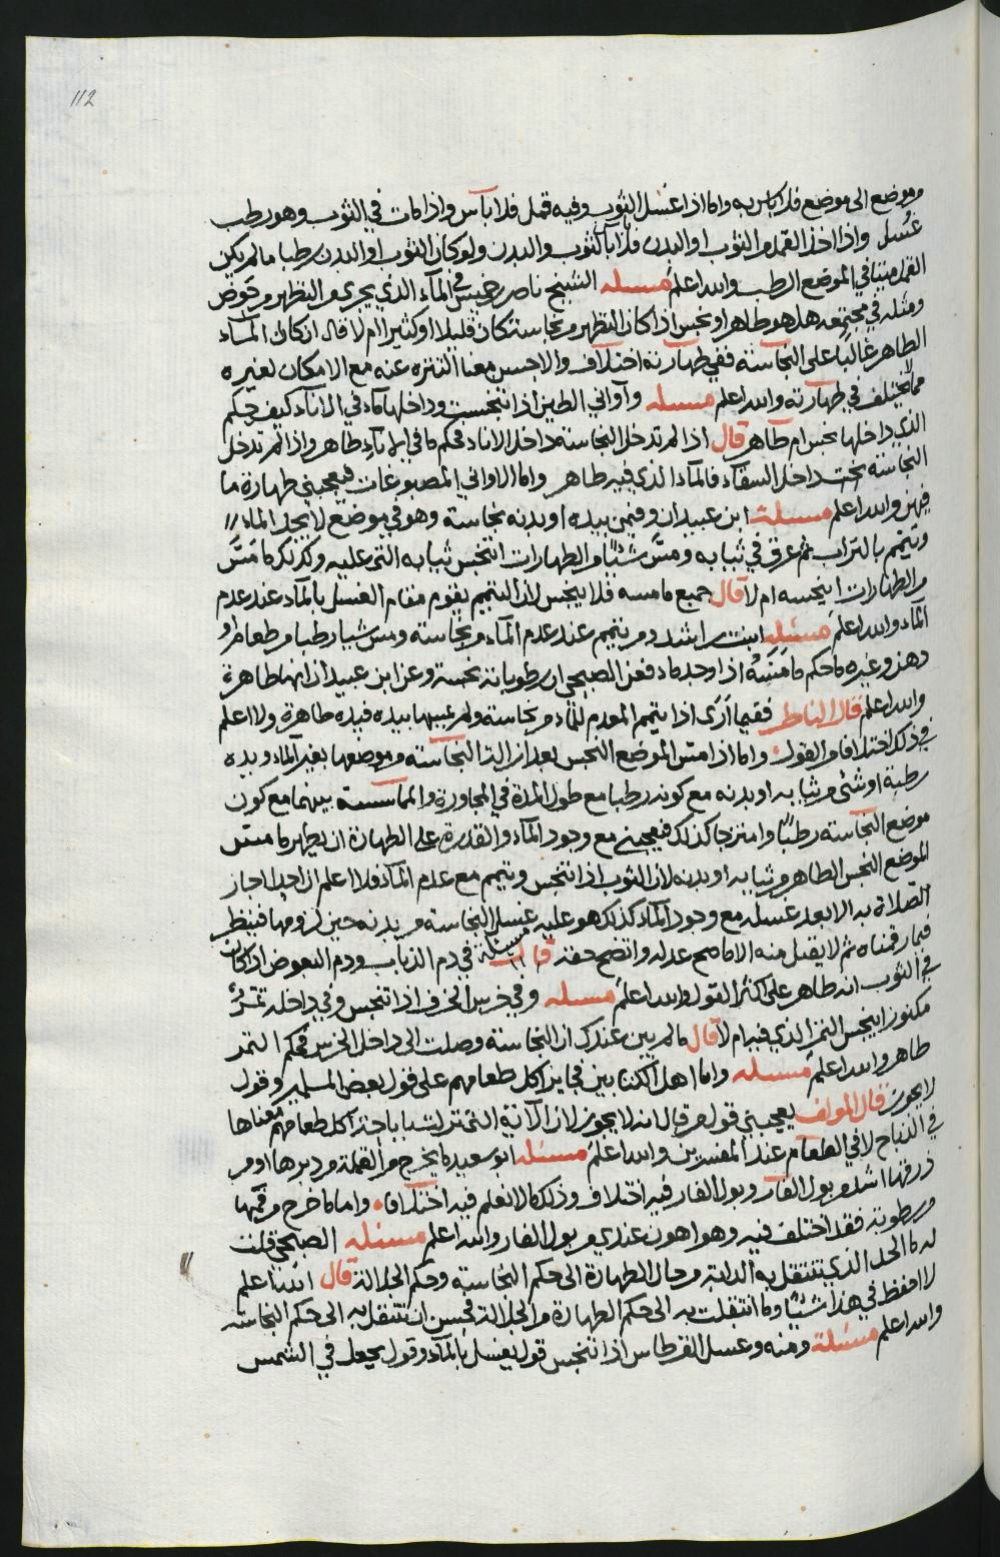 112
وموضع الى موضع فلا باس به واما اذا غسل الثوب وفيه قمل فلا بآس واذا مات في الثوب وهو رطب
غسل واذا اخذ القمل من الثوب او البدن فلا بآ بالثوب والبدن ولو كان الثوب او البدن رطبا ما لم يكن
القمل ميتا في الموضع الرطب والله اعلم مسئله الشيخ ناصر بن خميس في المآء الذي يجري من التطهر من حوض
ومثله في مجتمعه هل هو طاهر او نجس اذا كان التطهر من نجاسة كان قليلا او كثيرا ام لا قال ان كان المآء
الطاهر غالبا على النجآسة ففي طهارته اختلاف والاحسن معنا التنزه عنه مع الامكان لغيره
مما لا يختلف في طهآرته والله اعلم مسئله وآواني الطين اذا تنجست وداخلها مآء في الاناء كيف حكم
الذي داخلها نجس ام طاهر قال اذا لم تدخل النجاسة داخل الاناء فحكم ما في الانآء طاهر واذا لم تدخل
النجآسة داخل السقآء فالمآء الذي فيه طاهر واما الاواني المصبوغات فيعجبني طهارة ما
فيهن والله اعلم مسئلة ابن عبيدان وفيمن بيده او بدنه نجاسة وهو في موضع لا يجد المآء //
وتيمم بالتراب ثم عرق في ثيابه ومسَّ شيئا من الطهارات اتنجس ثيابه التي عليه وكذلك ما مَسَّ
من الطهارات اينجسه ام لا قال جميع ما مسه فلا ينجس لان التيمم يقوم مقام الغسل بالمآء عند عدم
المآء والله اعلم مسئله ابنت راشد ومن تيمم عند عدم المآء من نجاسته ومس شيا رطبا من طعام او
دهن وغيره ما حكم ما مَسَّه اذا وجد ماء فعن الصبحي ان رطوباته نجسة وعن ابن عبيدان انها طاهرة
والله اعلم قال الناظر فقيما آرى اذا تيمم المعدم للمآء من نجاسة ولم يمسها بيده فيده طاهرة ولا اعلم
في ذلك اختلافا من القول واما اذا مس الموضع النجس بعد ازالة النجآسة من موضعها بغير المآء ويده
رطبة او شئ من ثيابه او بدنه مع كونه رطبا مع طول المدة في المجاورة والمماسسة بينهما مع كون
موضع النجآسة رطبًا وامتزجا كذلك فيعجبني مع وجود المآء والقدرة على الطهارة ان يطهر ما مس
الموضع النجس الطاهر من ثيابه او بدنه لان الثوب اذا تنجس وتيمم مع عدم المآء فلا اعلم ان احدا اجاز
الصلاة به الا بعد غسله مع وجود المآء كذلك هو عليه غسل النجاسة من بدنه حين لزومها فينظر
فيما رقمناه ثم لا يقبل منه الا ما صح عدله واتضح حقه مسئلة قال في دم الذباب ودم البعوض اذا كان
في الثوب انه طاهر على اكثر القول والله اعلم مسئله وفي خرس الخزف اذا تنجس وفي داخله تمرٌ
مكنوز اينجس التمر الذي فيه ام لا قال ما لم يبن عندك ان النجاسة وصلت الى داخل الخرس فحكم التمر
طاهر والله اعلم مسئله واما اهل الكتابين فجايز اكل طعامهم على قول بعض المسلمين وقول
لا يجوز قال المولف يعجبني قول من قال انه لا يجوز لان الآية التي نزلت باباحة اكل طعامهم معناها
في الذباح لا في الطعام عند المفسرين والله اعلم مسئله ابو سعيد ما يخرج من القملة من دبرها او من
ذرقها اشد من بول الفآر وبول الفار فيه اختلاف وذلك ما لا نعلم فيه اختلافا واما ما خرج من فمها
من رطوبة فقد اختلف فيه وهو اهون عندي من بول الفار والله اعلم مسئله الصبحي قلت
له ما الحد الذي تنتقل به الدابة من حال الطهارة الى حكم النجاسة وحكم الجلالة قال الله اعلم
لا احفظ في هذا شيئا وما انتقلت به الى حكم الطهارة من الجلالة فحسن ان تنتقل به الى حكم النجاسة
والله اعلم مسئلة ومنه وغسل القرطاس اذا تنجس قول يغسل بالمآء وقول يجعل في الشمس